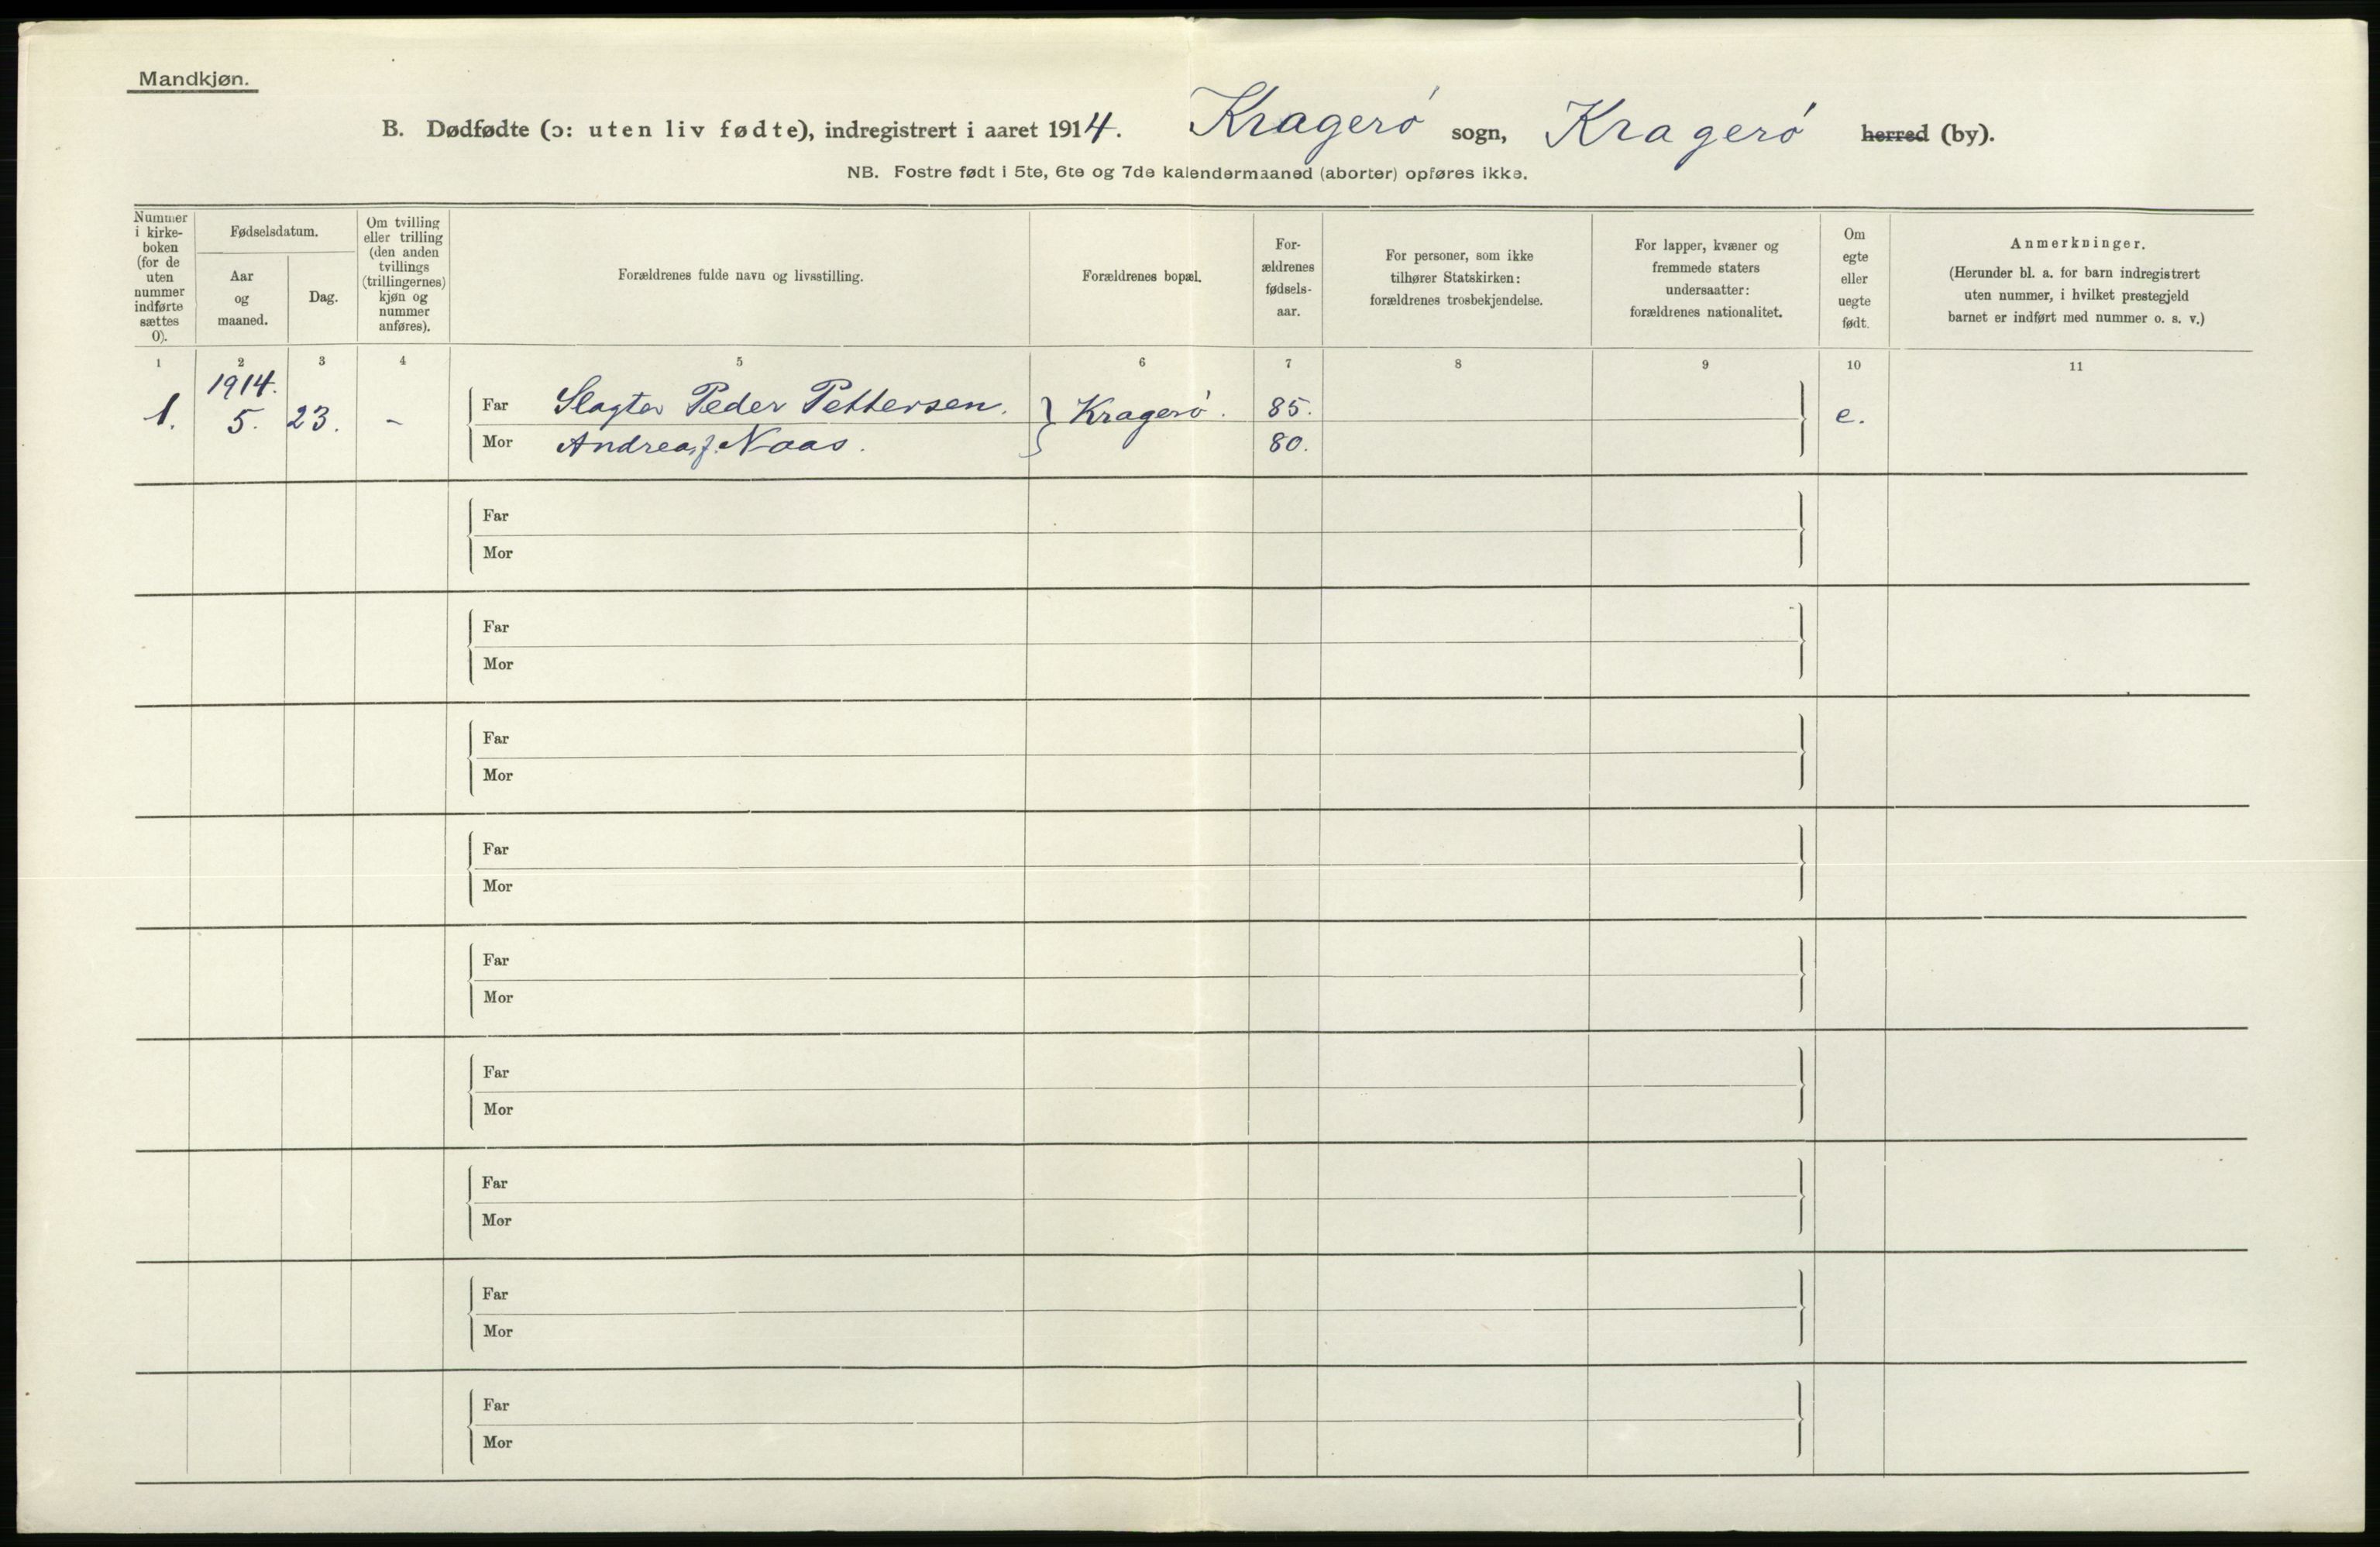 Mandkjøn.
B. Dødfødte (ɔ: uten liv fødte), indregistrert i aaret 1914. Kragerø sogn, Kragerø herred (by).
NB. Fostre født i 5te, 6te og 7de kalendermaaned (aborter) opføres ikke.
Nummer
i kirke-
boken
(for de
uten
nummer
indførte
sættes
0).
Fødselsdatum.
Aar
og
maaned.
Dag.
Om tvilling
eller trilling
(den anden
tvillings
(trillingernes)
kjøn og
nummer
anføres).
Forældrenes fulde navn og livsstilling.
Forældrenes bopæl.
For-
ældrenes
fødsels-
aar.
For personer, som ikke
tilhører Statskirken:
forældrenes trosbekjendelse.
For lapper, kvæner og
fremmede staters
undersaatter:
forældrenes nationalitet.
Om
egte
eller
uegte
født.
Anmerkninger.
(Herunder bl. a. for barn indregistrert
uten nummer, i hvilket prestegjeld
barnet er indført med nummer o. s. v.)
1 2 3 4 5 6 7 8 9 10 11
1914.
1. 5. 23. - Far Slagter Peder Pettersen. Kragerø. 85. e.
Mor Andrea, f. Naas. 80.
Far
Mor
Far
Mor
Far
Mor
Far
Mor
Far
Mor
Far
Mor
Far
Mor
Far
Mor
Far
Mor